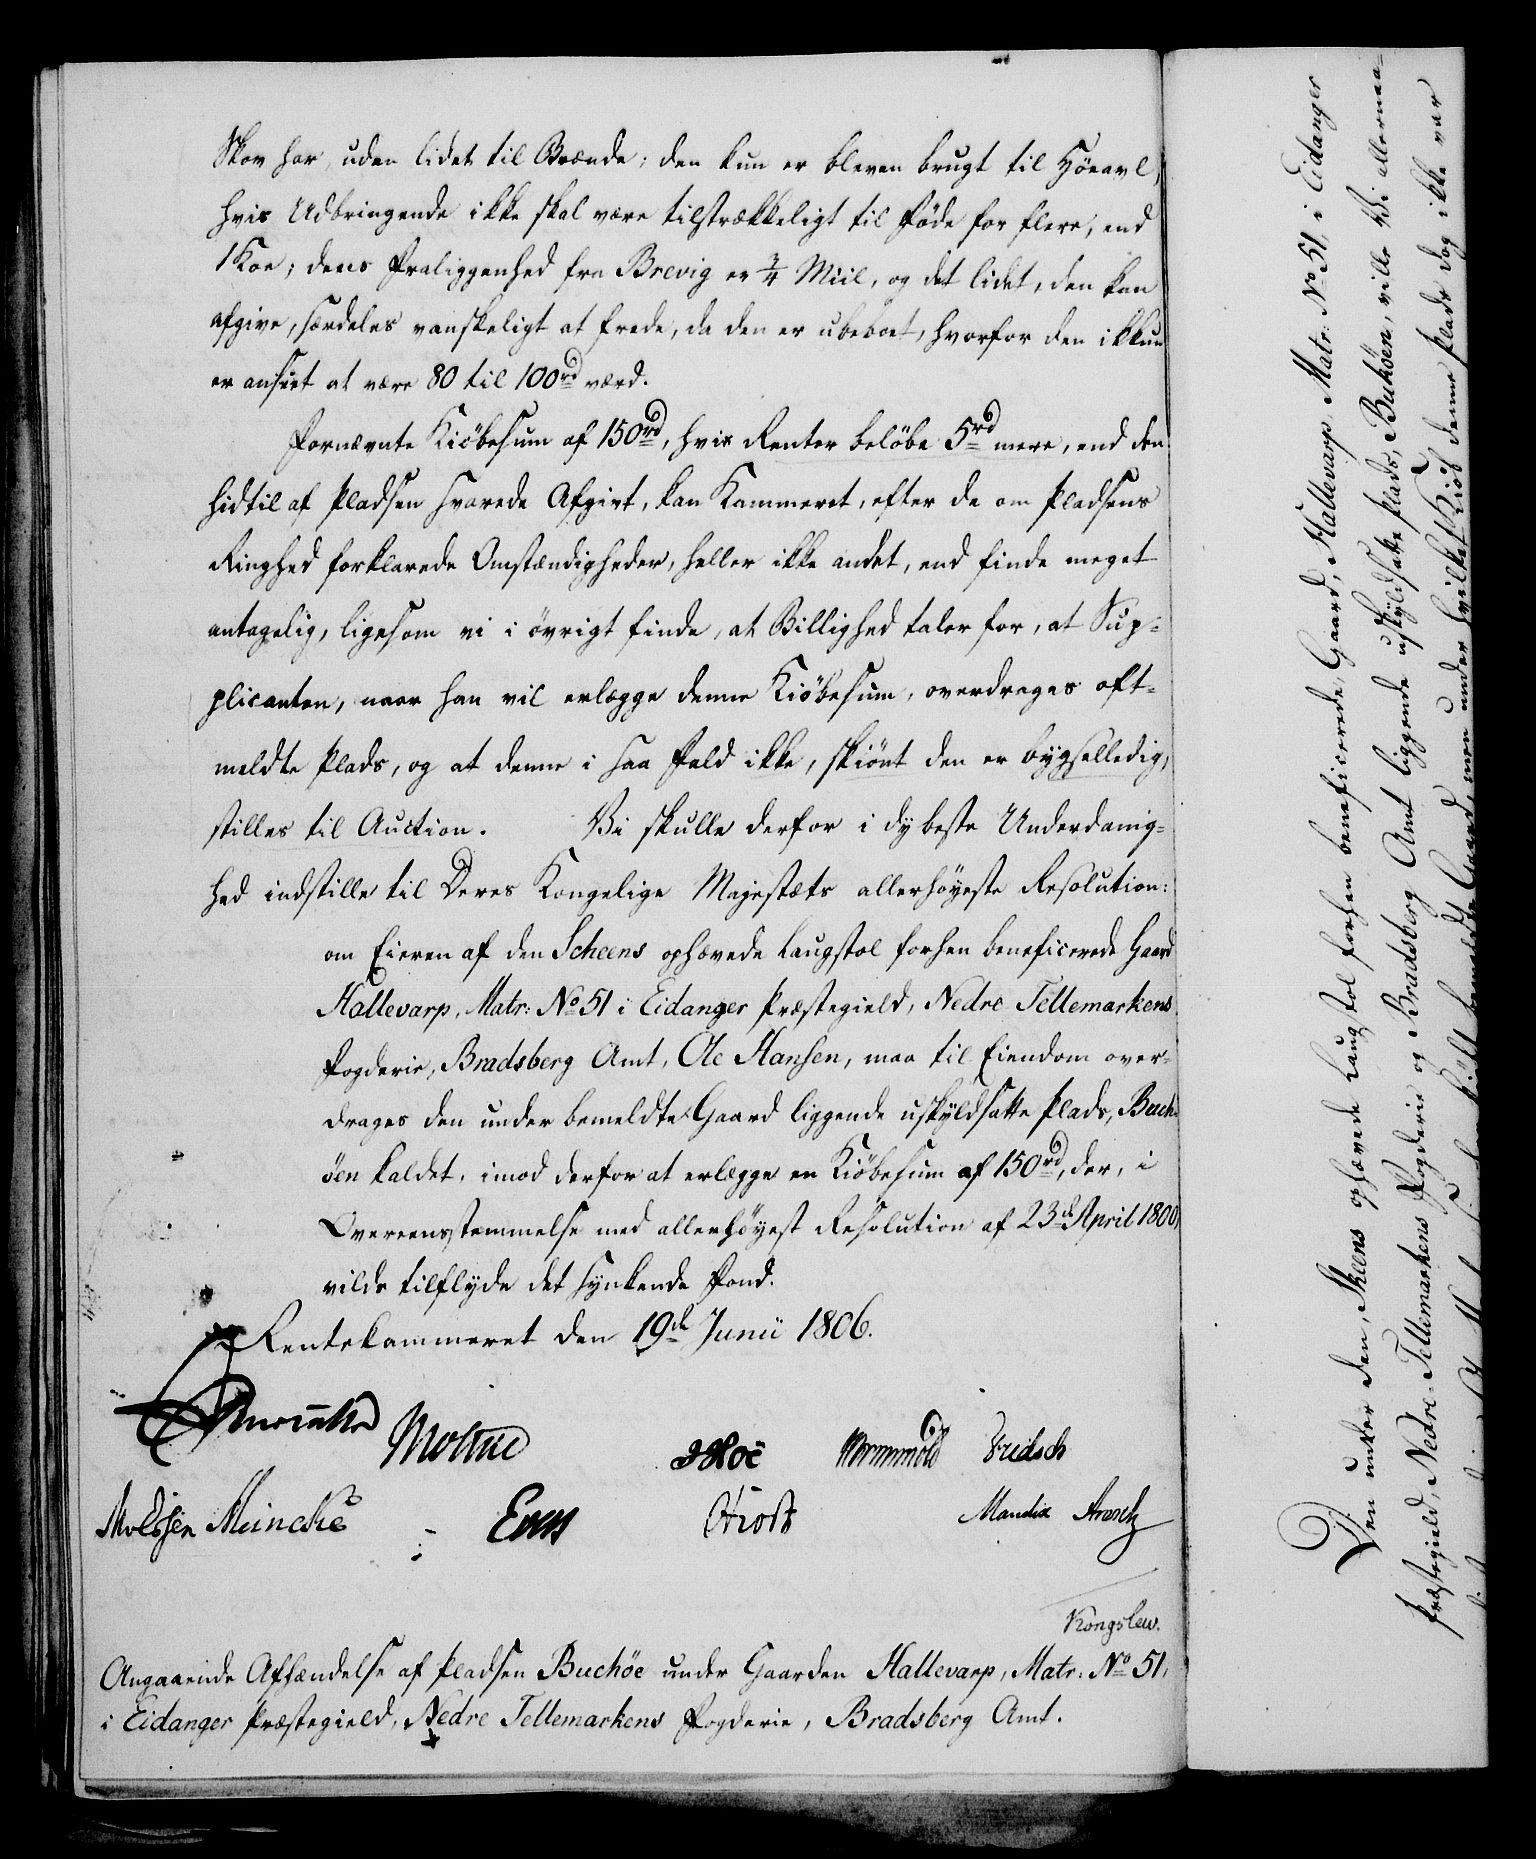 Skov har, uden lidet til Brænde; den kun er bleven brugt til Höeavl,
hvis Udbringende ikke skal være tilstrækkeligt til Föde for flere, end
1 Koe; dens Fraliggenhed fra Brevig er ¾ Miil, og det lidet, den kan
afgive, særdeles vanskeligt at frede, da den er ubeboet, hvorfor den ikkun
er anseet at være 80 til 100 rd værd.
Fornævnte Kiöbesum af 150 rd, hvis Renter belöbe 5 rd mere, end den
hidtil af Pladsen svarede Afgivt, kan Kammeret, efter de om Pladsens
Ringhed forklarede Omstændigheder, heller ikke andet, end finde meget
antagelig, ligesom vi i övrigt finde, at Billighed taler for, at Sup-
plicanten, naar han vil erlægge denne Kiöbesum, overdrages oft-
meldte Plads, og at denne i saa Fald ikke, skiönt den er bygselledig,
stilles til Auction. Vi skulle derfor i dybeste Underdanig-
hed indstille til Deres Kongelige Majestæts allerhöyeste Resolution:
om Eieren af den Scheens ophævede Laugstol forhen beneficerede Gaard
Hallevarp, Matr: No 51 i Eidanger Præstegield, Nedre Tellemarkens
Fogderie, Bradsberg Amt, Ole Hansen, maa til Eiendom over-
drages den under bemeldte Gaard liggende uskyldsatte Plads, Buch-
öen kaldet, imod derfor at erlægge en Kiöbesum af 150 rd, der, i
Overeensstemmelse med allerhöyest Resolution af 23de April 1800,
vilde tilflyde det synkende Fond.
Rentekammeret den 19de Junii 1806.
Moltke
Wormskiold Fridsch
Meincke
Mandix
Kongslew.
Angaaende Afhændelse af Pladsen Buchöe under Gaarden Hallevarp, Matr: No 51,
i Eidanger Præstegield, Nedre Tellemarkens Fogderie, Bradsberg Amt.
Den under den, Skeens ophævede Laugstol forhen beneficerede, Gaard, Hallevarp, Matr: No 51, i Eidanger
Præstegield, Nedre-Tellemarkens Fogderie og Bradsberg Amt liggende uskyldsatte Plads, Buköen, ville Vi allernaa-
men under hvilket Kiöb denne Plads dog ikke var